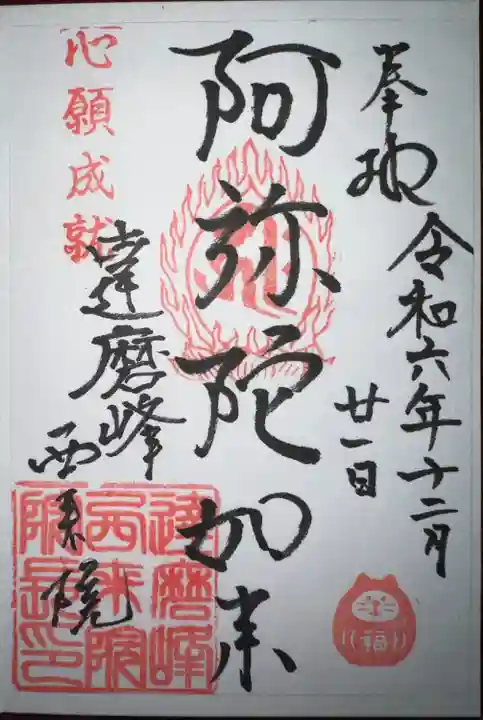 奉拝
令和六年十二月
廿一日
阿弥陀如来
心願成就
達磨峰
西来院
達磨峰
西来院
福